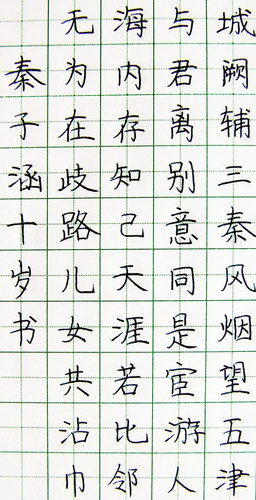 城阙辅三秦风烟望五津
与君离别意同是宦游人
海内存知己天涯若比邻
无为在歧路儿女共沾巾
秦子涵十岁书